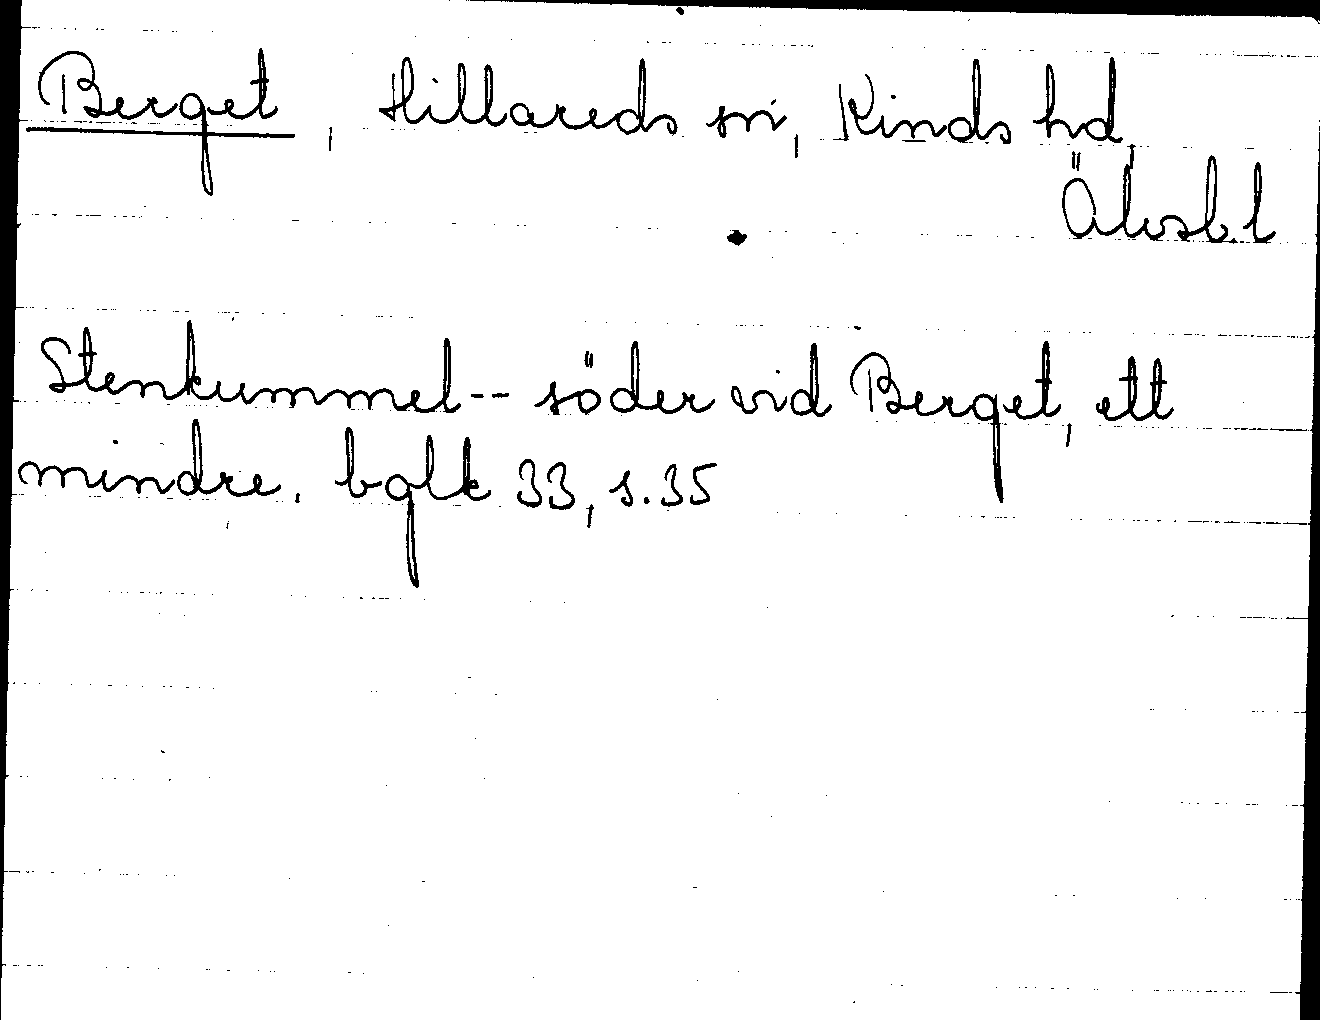 Berget, Hillareds sn, Kinds hd,
Älvsb.l
Stenkummel-- söder vid Berget, ett
mindre. bglk 33, s.35